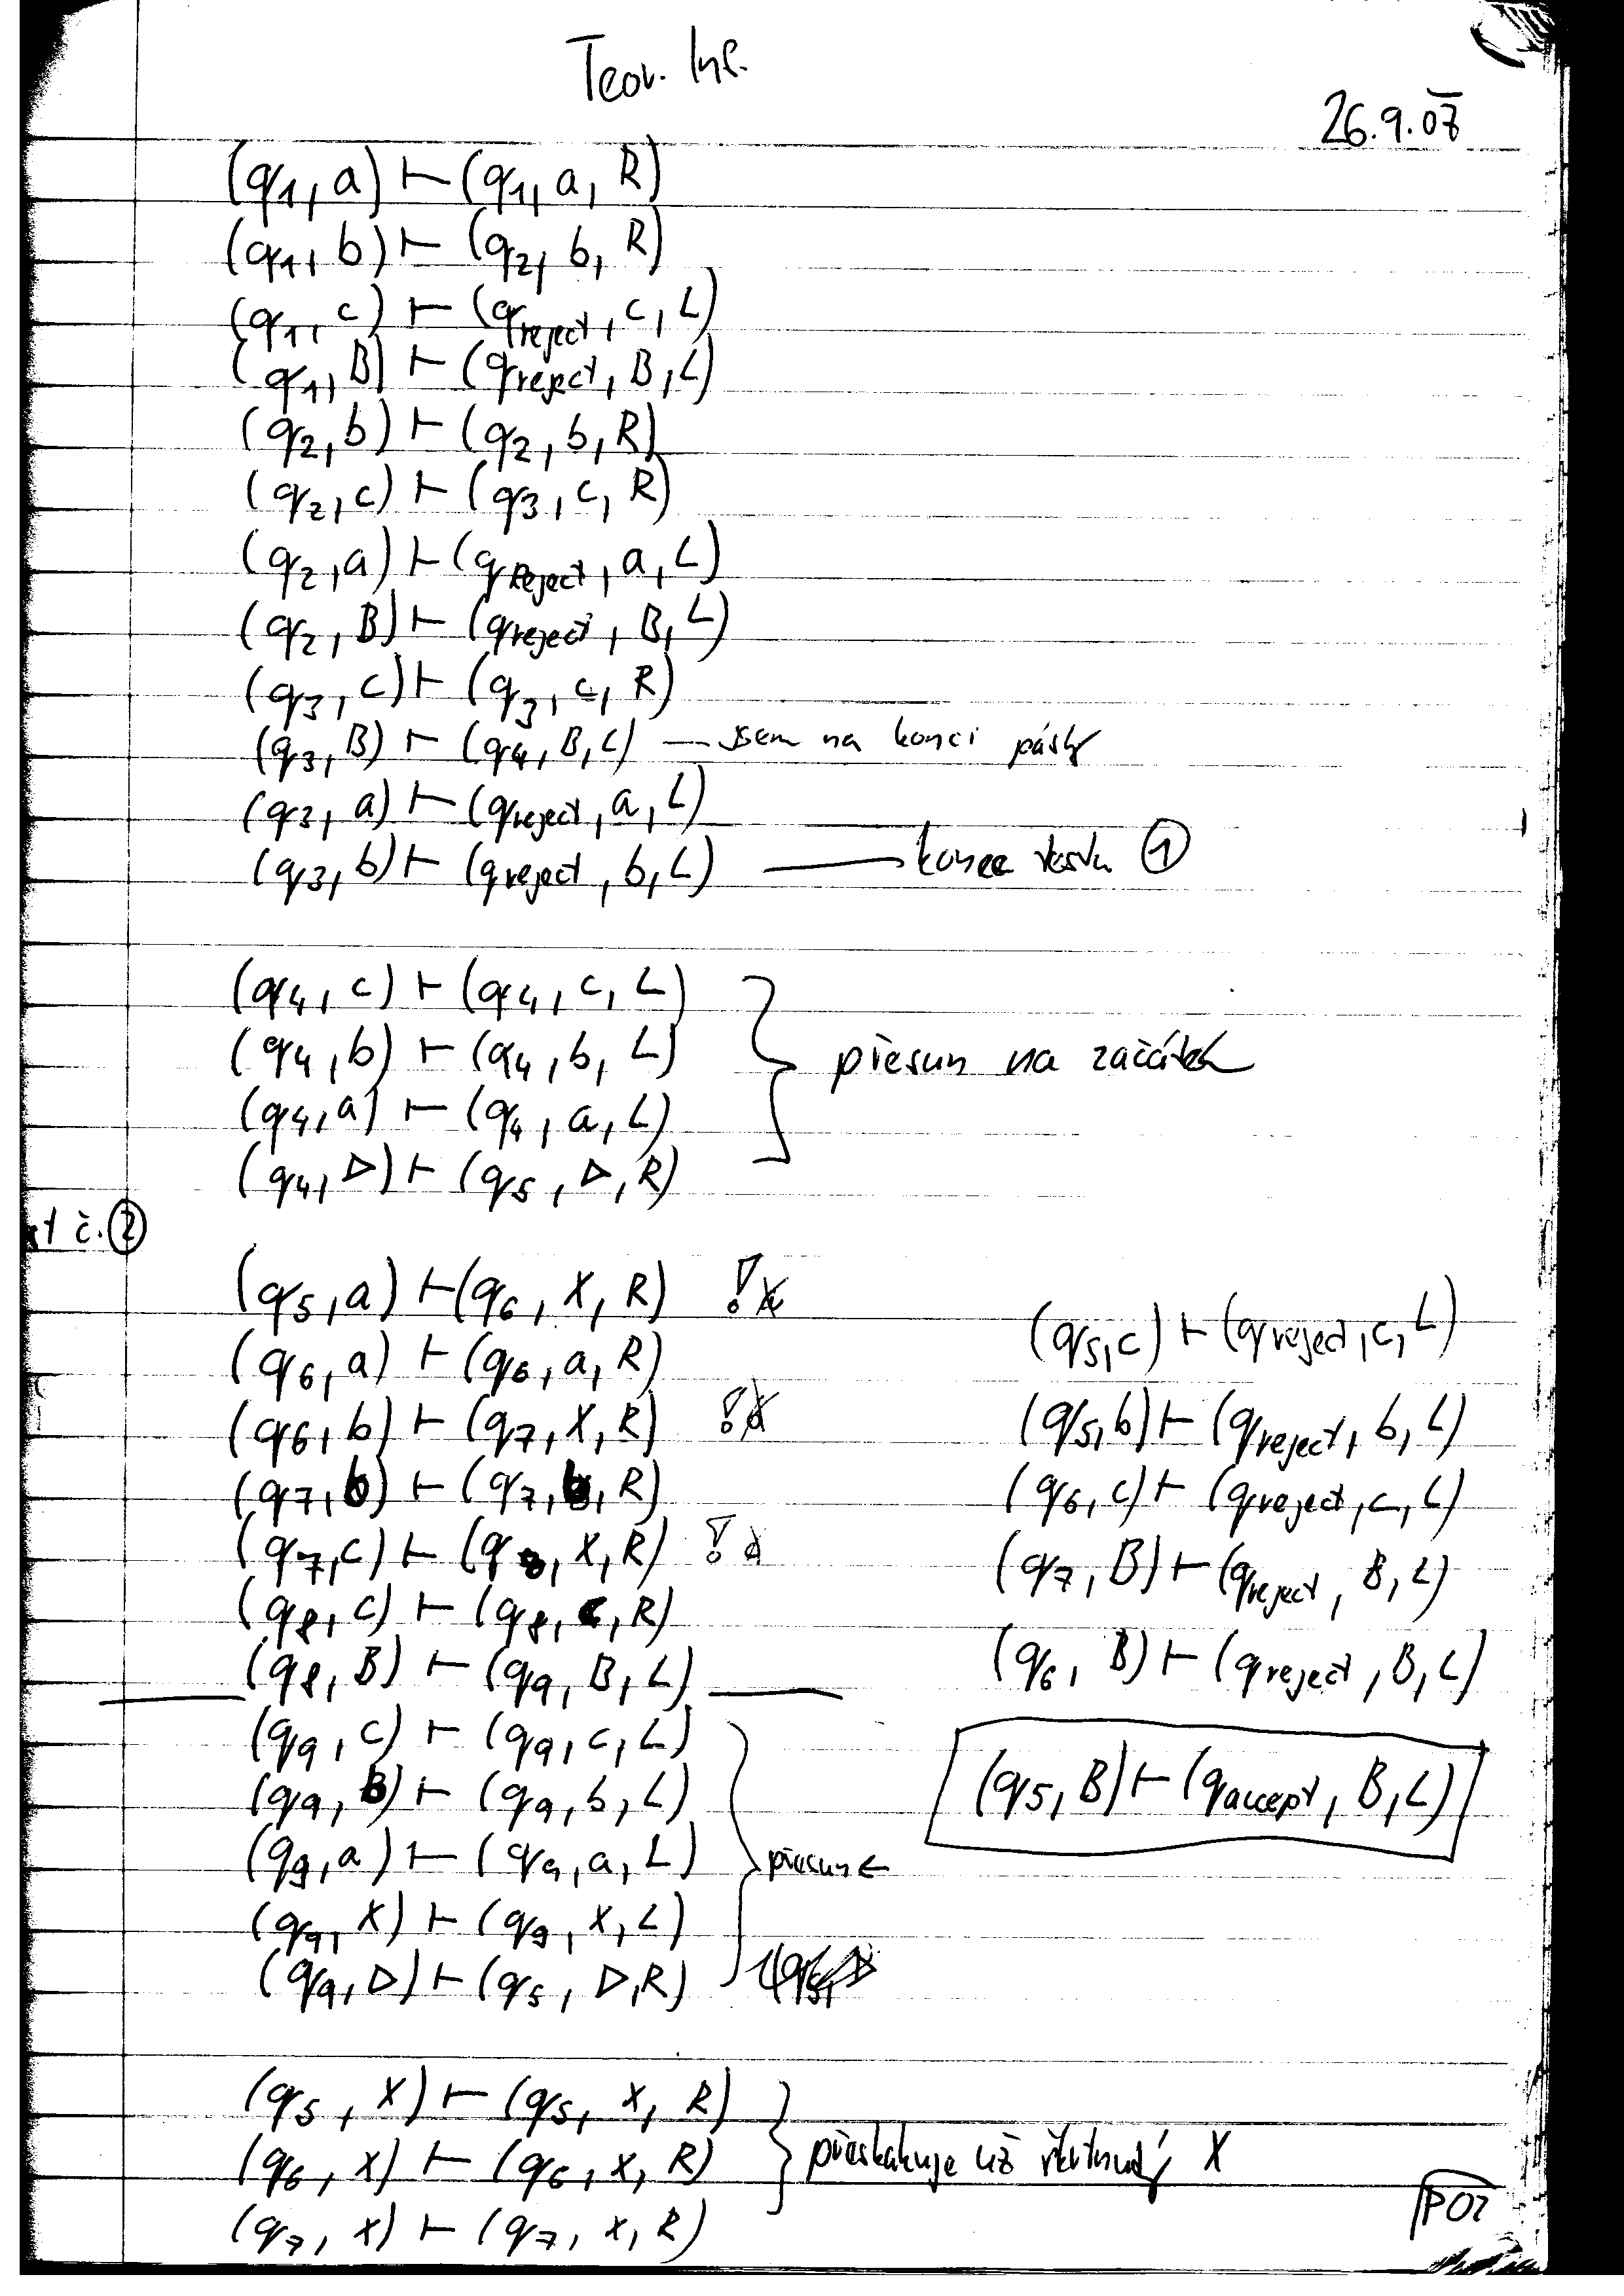 Teor. Inf.
26.9.07
(q1, a) ⊢ (q1, a, R)
(q1, b) ⊢ (q2, b, R)
(q1, c) ⊢ (qreject, c, L)
(q1, B) ⊢ (qreject, B, L)
(q2, b) ⊢ (q2, b, R)
(q2, c) ⊢ (q3, c, R)
(q2, a) ⊢ (qReject, a, L)
(q2, B) ⊢ (qreject, B, L)
(q3, c) ⊢ (q3, c, R)
(q3, B) ⊢ (q4, B, L) — jsem na konci pásky
(q3, a) ⊢ (qreject, a, L)
(q3, b) ⊢ (qreject, b, L) — konec testu ①
(q4, c) ⊢ (q4, c, L)
(q4, b) ⊢ (q4, b, L) přesun na začátek
(q4, a) ⊢ (q4, a, L)
(q4, ▷) ⊢ (q5, ▷, R)
č. ②
(q5, a) ⊢ (q6, X, R) !
(q6, a) ⊢ (q6, a, R)
(q6, b) ⊢ (q7, X, R) !
(q7, b) ⊢ (q7, b, R)
(q7, c) ⊢ (q8, X, R) !
(q8, c) ⊢ (q8, c, R)
(q8, B) ⊢ (q9, B, L)
(q9, c) ⊢ (q9, c, L)
(q9, B) ⊢ (q9, b, L)
(q9, a) ⊢ (q9, a, L) přesun ←
(q9, X) ⊢ (q9, X, L)
(q9, ▷) ⊢ (q5, ▷, R)
(q5, c) ⊢ (qreject, c, L)
(q5, b) ⊢ (qreject, b, L)
(q6, c) ⊢ (qreject, c, L)
(q7, B) ⊢ (qreject, B, L)
(q6, B) ⊢ (qreject, B, L)
(q5, B) ⊢ (qaccept, B, L)
(q5, X) ⊢ (q5, X, R)
(q6, X) ⊢ (q6, X, R) přeskakuje už X
(q7, X) ⊢ (q7, X, R)